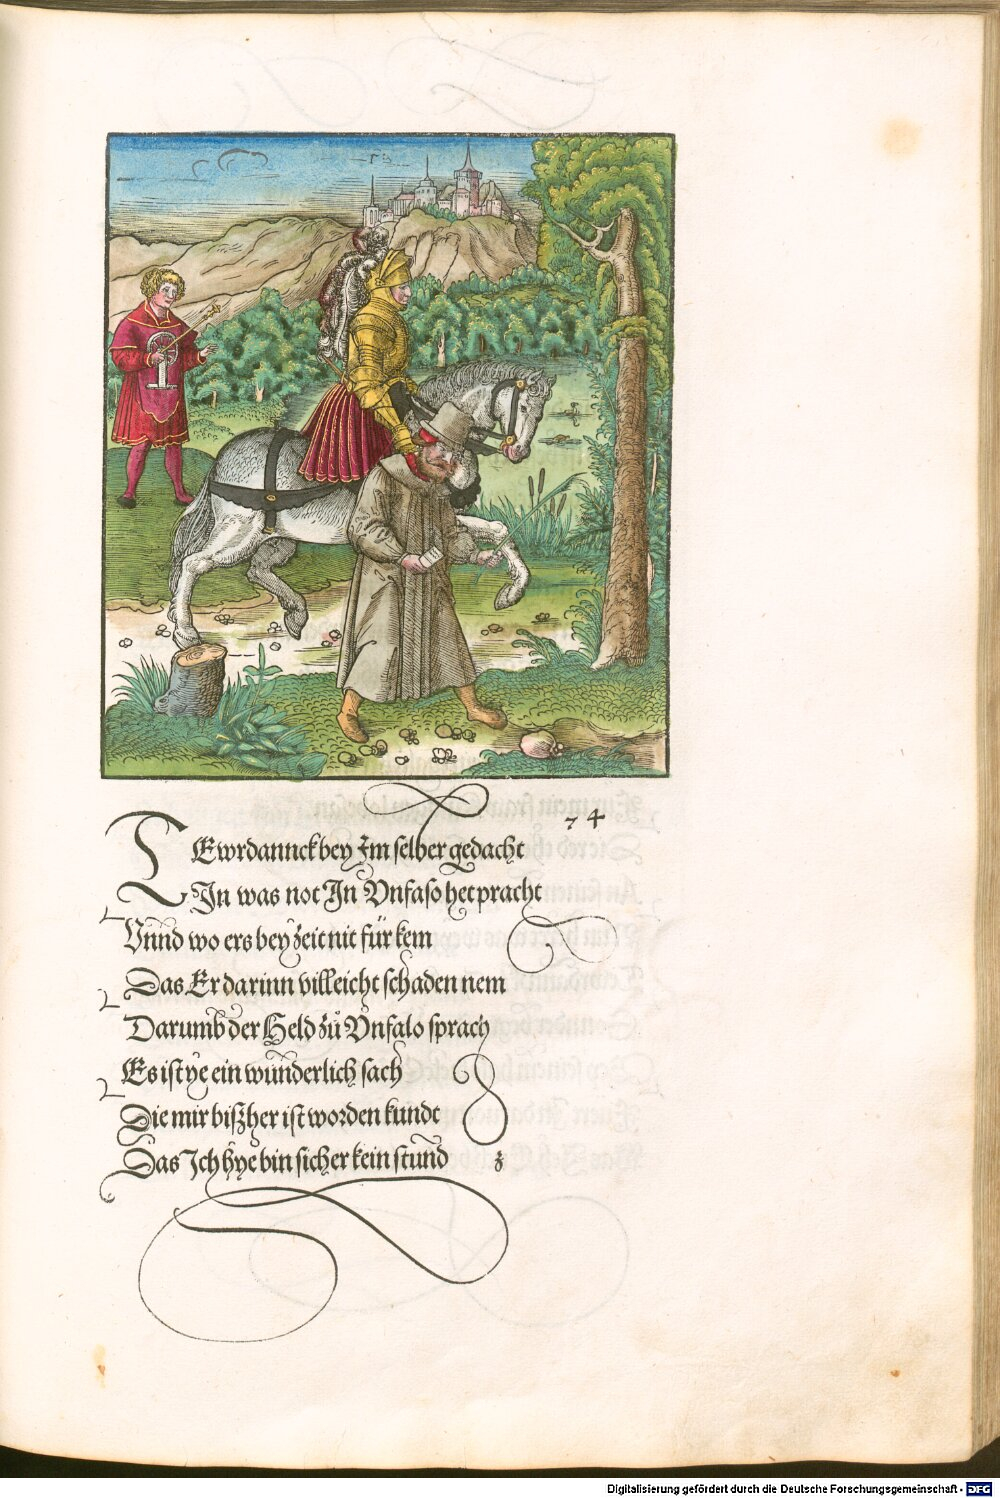 74
TEwrdannck bey Im selber gedacht
In was not In Vnfalo het pracht
Vnnd wo ers bey zeit nit für kem
Das Er darinn villeicht schaden nem
Darumb der Held zů Vnfalo sprach
Es ist ye ein wunderlich sach
Die mir biszher ist worden kundt
Das Ich hye bin sicher kein stund
z
Digitalisierung gefördert durch die Deutsche Forschungsgemeinschaft - DFG